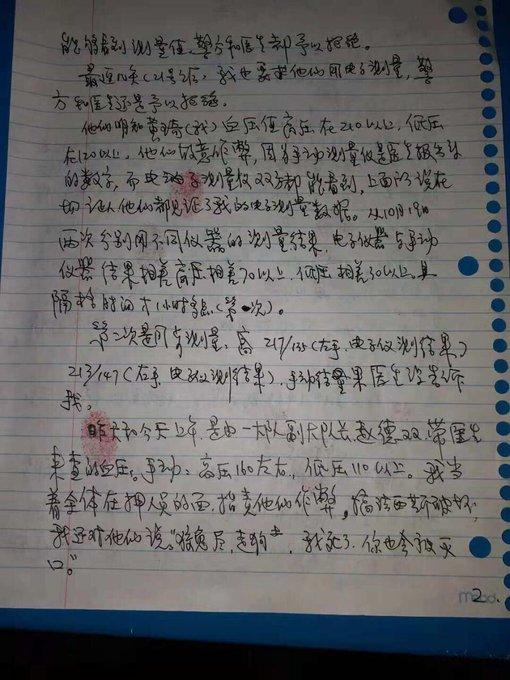 能够看到测量值，警方和医生都予以拒绝。
最近几天(21号还)，我也要求他们用电子测量，警
方和医生还是予以拒绝。
他们明知黄琦(我)血压值高压在210以上，低压
在120以上，他们故意作弊，因为手动测量仪是医生报告的
的数字，而电子测量仪双方都能看到，上面所说在
切证人他们都见证了我的电子测量数据。从10月19日
两次分别用不同仪器的测量结果，电子仪器与手动
仪器结果相差高压相差70以上，低压相差30以上，其
隔时间才1小时多(第一次)。
第二次是同步测量，高217/135(右手，电子仪测结果)
213/147(左手，电子仪测结果)，手动结果医生没告诉
我。
昨天和今天上午，是由一大队副大队长赵德双带医生
来查的血压。手动：高压160左右，低压110以上。我当
着全体在押人员的面，指责他们作弊，搞法西斯破坏，
我还对他们说，"狡兔尽，走狗烹"，我死了，你也会被灭
口。
2.